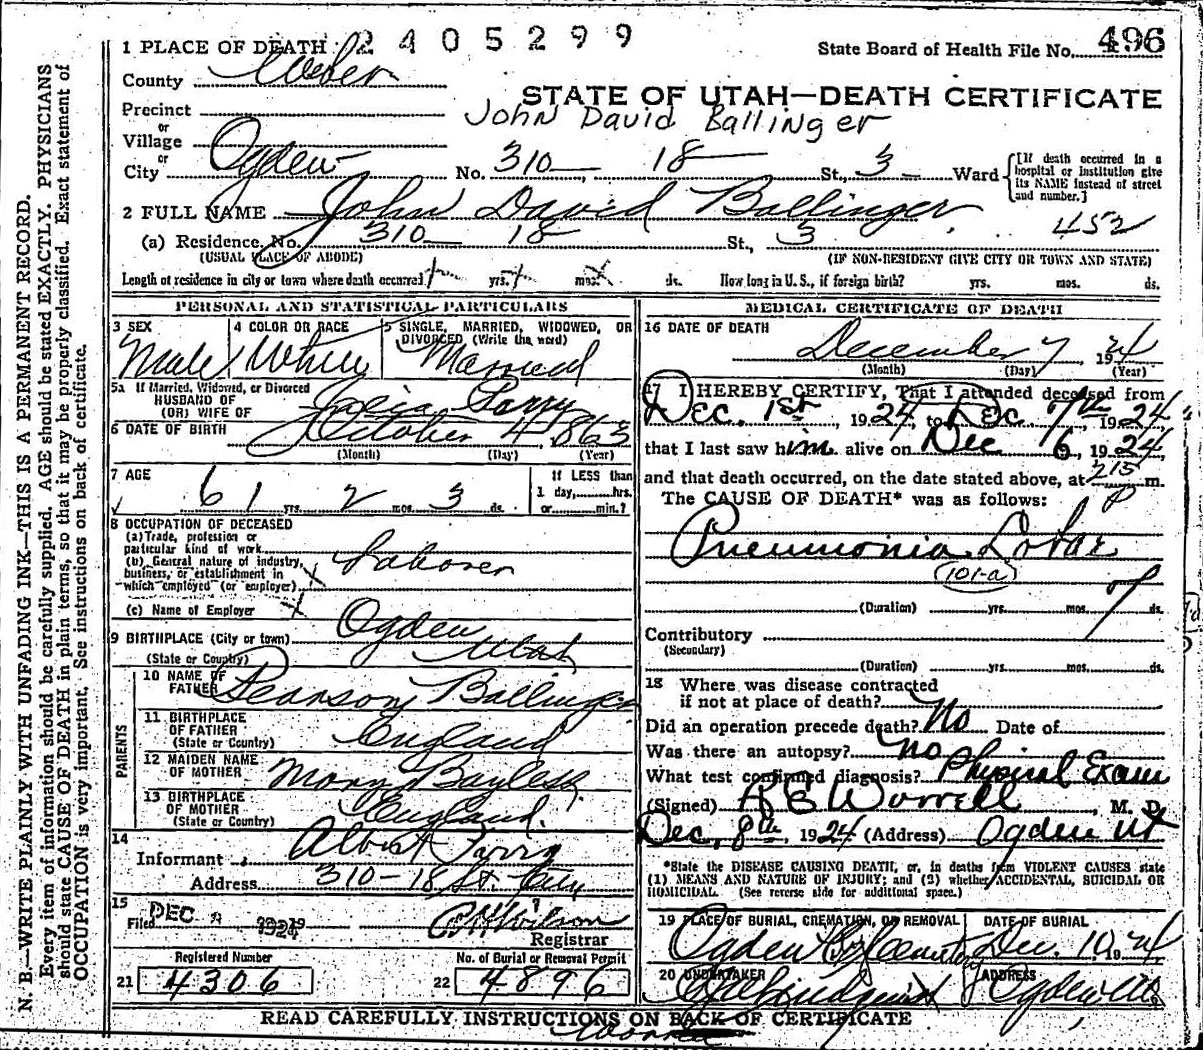 1 PLACE OF DEATH 2405299
State Board of Health File No. 496
County Weber
STATE OF UTAH—DEATH CERTIFICATE
Precinct
John David Ballinger
or
Village
or
City Ogden No. 310 18 St., 3 Ward
[If death occurred in a hospital or institution give its NAME instead of street and number.]
2 FULL NAME John David Ballinger 452
(a) Residence. No. 310 18 St., 3
(USUAL PLACE OF ABODE) (IF NON-RESIDENT GIVE CITY OR TOWN AND STATE)
Length of residence in city or town where death occurred yrs. mos. ds. How long in U. S., if foreign birth? yrs. mos. ds.
PERSONAL AND STATISTICAL PARTICULARS
3 SEX
Male
4 COLOR OR RACE
White
5 SINGLE, MARRIED, WIDOWED, OR
DIVORCED (Write the word)
Married
5a If Married, Widowed, or Divorced
HUSBAND OF
(OR) WIFE OF Parry
6 DATE OF BIRTH October 4 1863
(Month) (Day) (Year)
7 AGE
61 yrs 2 mos 3 ds.
If LESS than
1 day, hrs.
or min.?
8 OCCUPATION OF DECEASED
(a) Trade, profession or
particular kind of work
(b) General nature of industry,
business, or establishment in
which employed (or employer)
Laborer
(c) Name of Employer
9 BIRTHPLACE (City or town) Ogden
(State or Country) Utah
PARENTS
10 NAME OF
FATHER Pearson Ballinger
11 BIRTHPLACE
OF FATHER
(State or Country) England
12 MAIDEN NAME
OF MOTHER Mary Bayless
13 BIRTHPLACE
OF MOTHER
(State or Country) England.
14
Informant Albert Parry
Address 310-18 St. City
15
Filed DEC 1924 Wilson
Registrar
Registered Number
21 4306
No. of Burial or Removal Permit
22 4896
MEDICAL CERTIFICATE OF DEATH
16 DATE OF DEATH
December 7 1924
(Month) (Day) (Year)
17 I HEREBY CERTIFY, That I attended deceased from
Dec. 1st, 1924, to Dec 7th, 1924,
that I last saw him alive on Dec 6, 1924,
and that death occurred, on the date stated above, at 215 P m.
The CAUSE OF DEATH* was as follows:
Pneumonia Lobar
101-a
(Duration) yrs. mos. 7 ds.
Contributory
(Secondary)
(Duration) yrs. mos. ds.
18 Where was disease contracted
if not at place of death?
Did an operation precede death? No Date of
Was there an autopsy? no
What test confirmed diagnosis? Physical Exam
(Signed) Worrell, M. D.
Dec. 8th, 1924 (Address) Ogden Ut
*State the DISEASE CAUSING DEATH, or, in deaths from VIOLENT CAUSES state
(1) MEANS AND NATURE OF INJURY; and (2) whether ACCIDENTAL, SUICIDAL OR
HOMICIDAL. (See reverse side for additional space.)
19 PLACE OF BURIAL, CREMATION, OR REMOVAL
Ogden City
DATE OF BURIAL
Dec. 10 1924
20 UNDERTAKER
ADDRESS
Ogden
READ CAREFULLY INSTRUCTIONS ON BACK OF CERTIFICATE
N. B.—WRITE PLAINLY WITH UNFADING INK—THIS IS A PERMANENT RECORD.
Every item of information should be carefully supplied. AGE should be stated EXACTLY. PHYSICIANS
should state CAUSE OF DEATH in plain terms, so that it may be properly classified. Exact statement of
OCCUPATION is very important. See instructions on back of certificate.